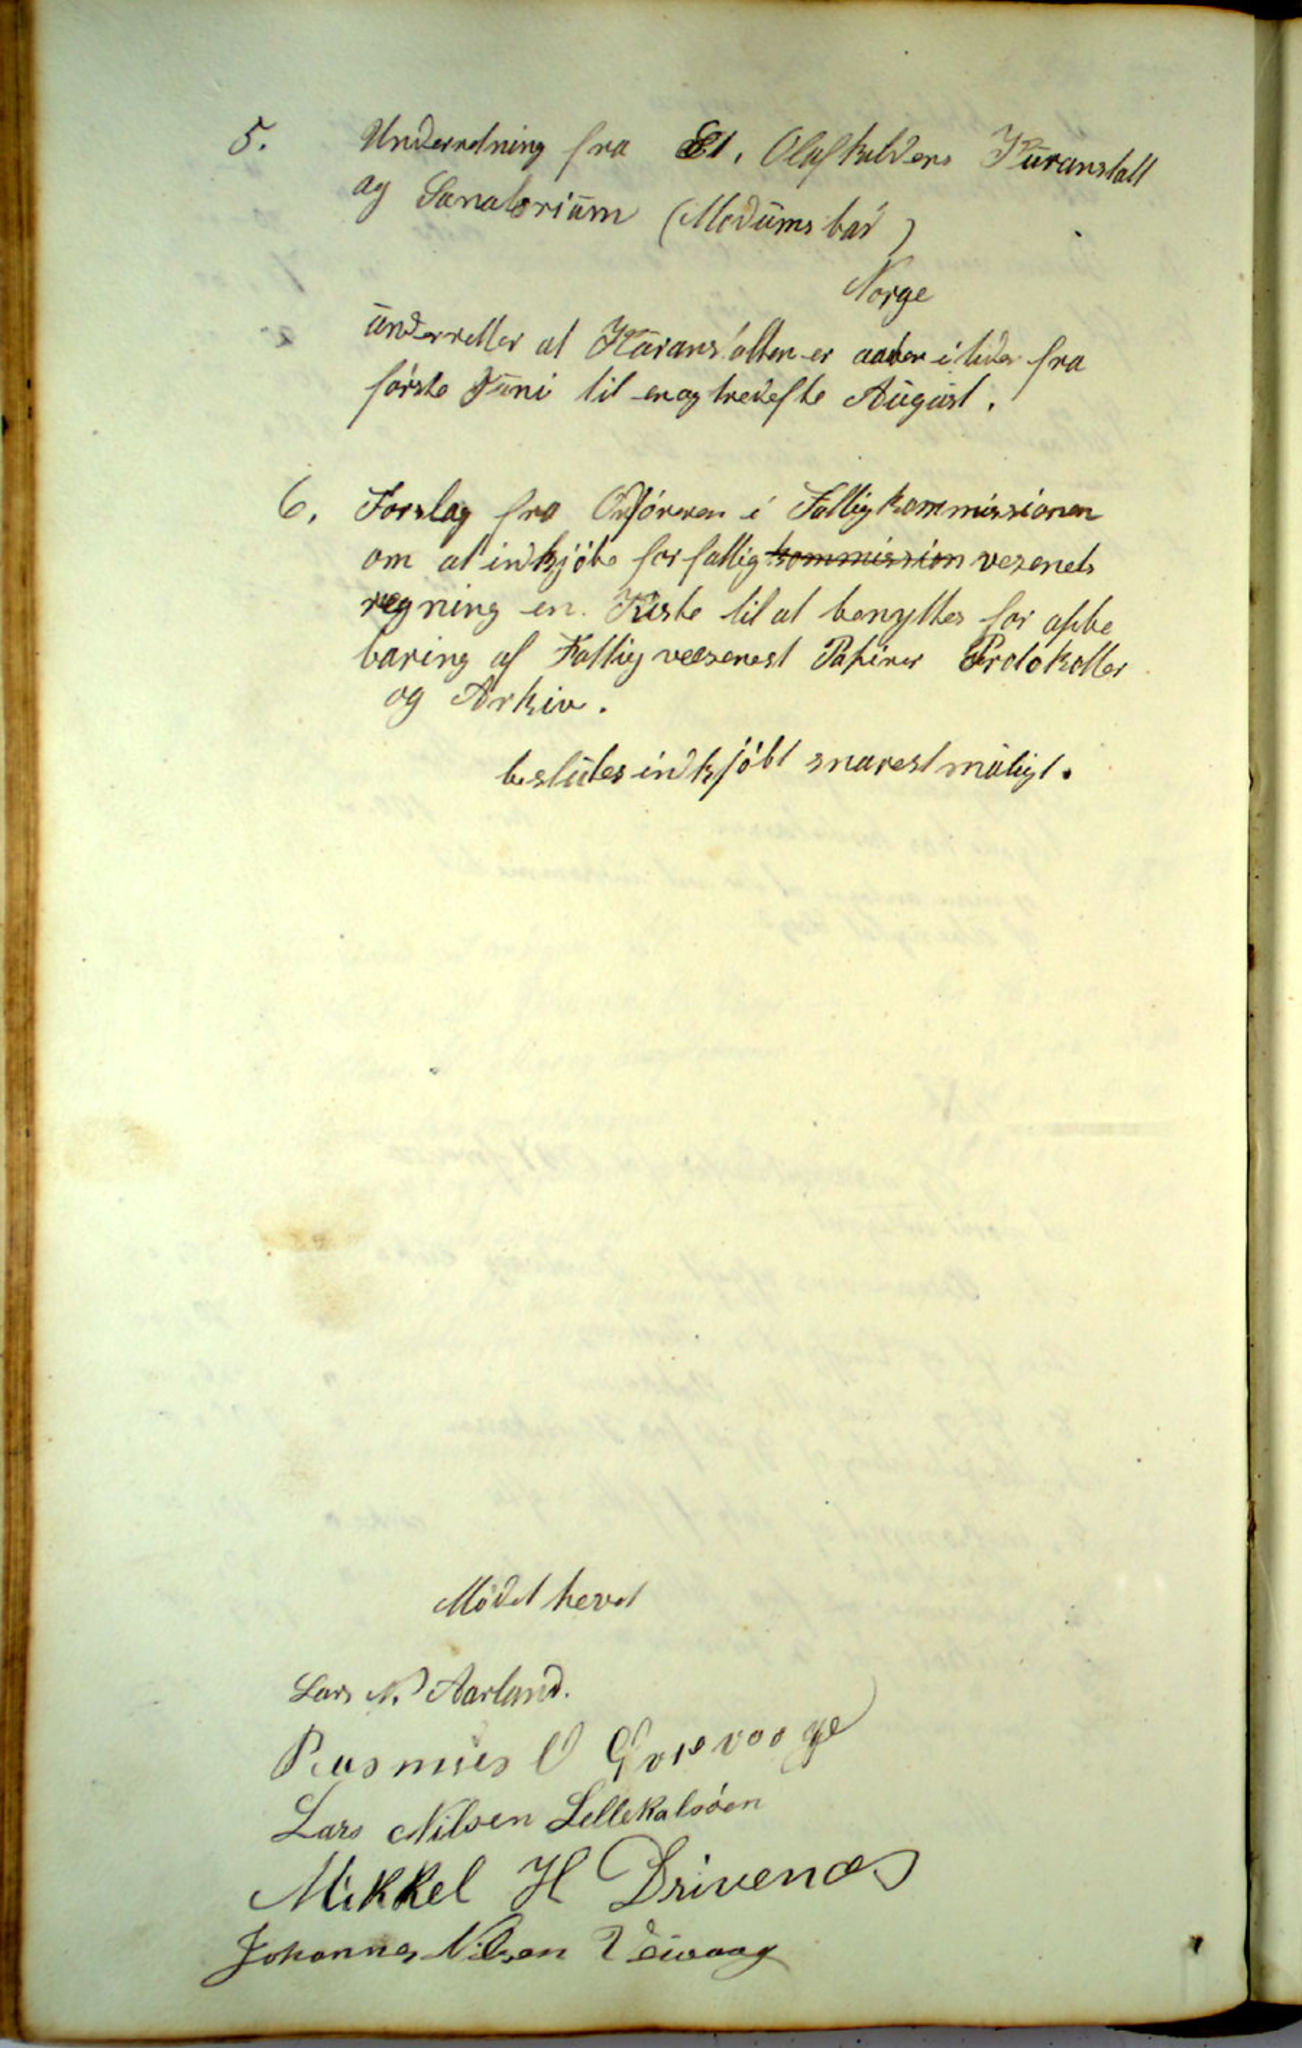 5. Underretning fra St. Olafkildens Kuranstalt
og Sanatorium (Modums bad)
Norge
underretter at Kuranstalten er aaben i tiden fra
første Juni til enogtredefte August.
6. Forslag fra Ordføreren i Fattigkommissionen
om at indkjøbe for fattigkommission vesenets
regning en Kiste til at benyttes for opbe
varing af Fattigveesenest Papirer Protokoller
og Arkiv.
besluttes indkjøbt snarest muligt.
Mødet hevet
Lars N. Aarland.
Rasmus O
Lars Nilsen Lellekalsøen
Mikkel H Drivenæs
Johannes Nilsen Veivaag